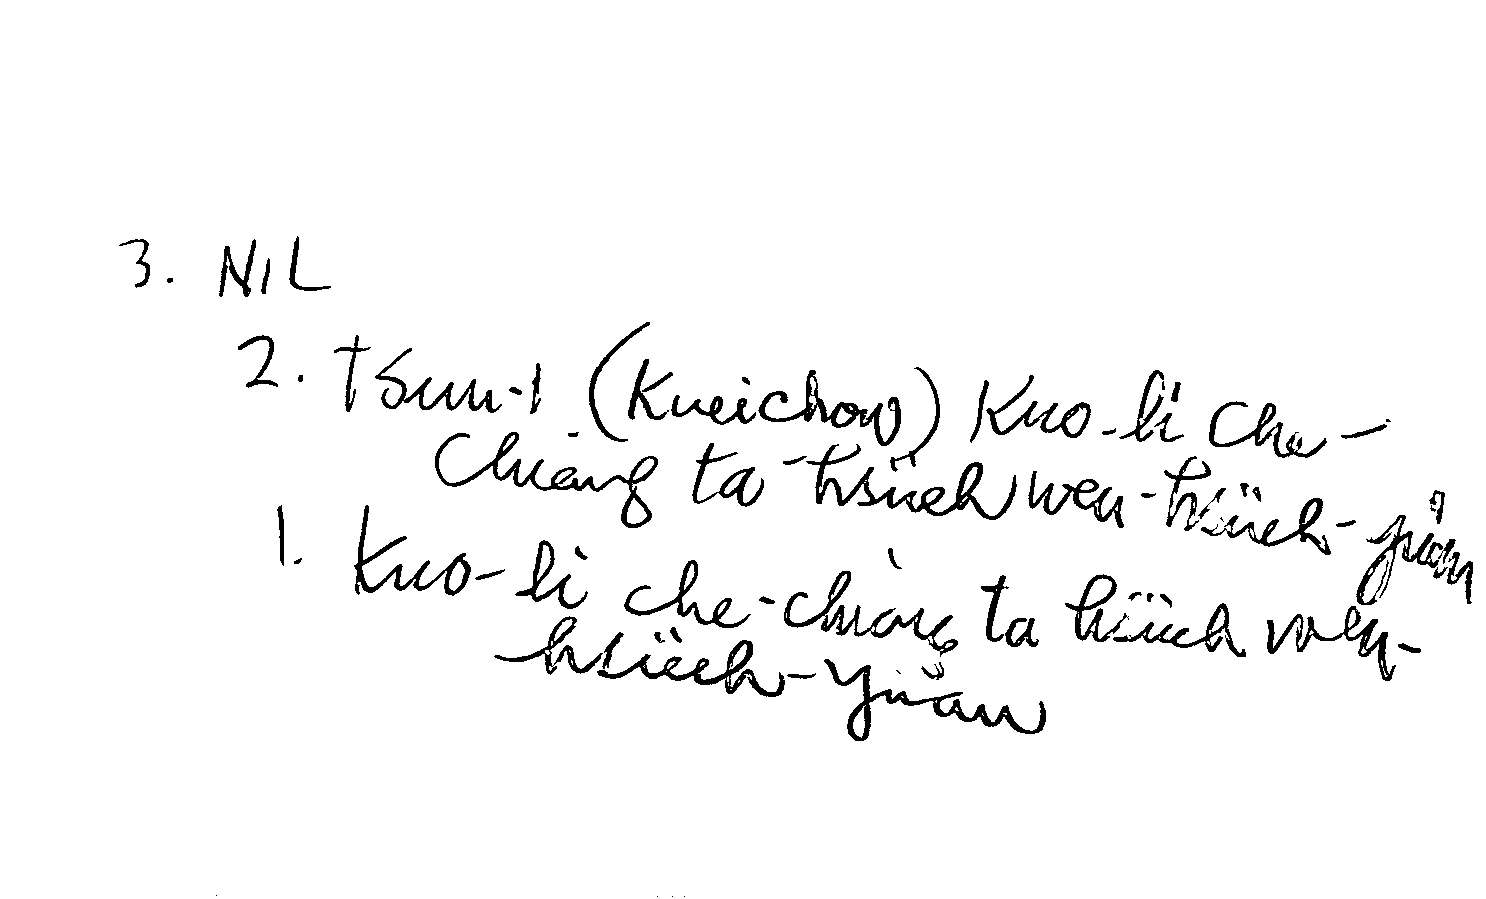 3. NIL
2. Tsun-i (Kueichow) Kuo-li Che-
Chiang ta-hsüeh wen-hsüeh-yüan
1. Kuo-li che-chiang ta hsüeh wen-
hsüeh-yüan